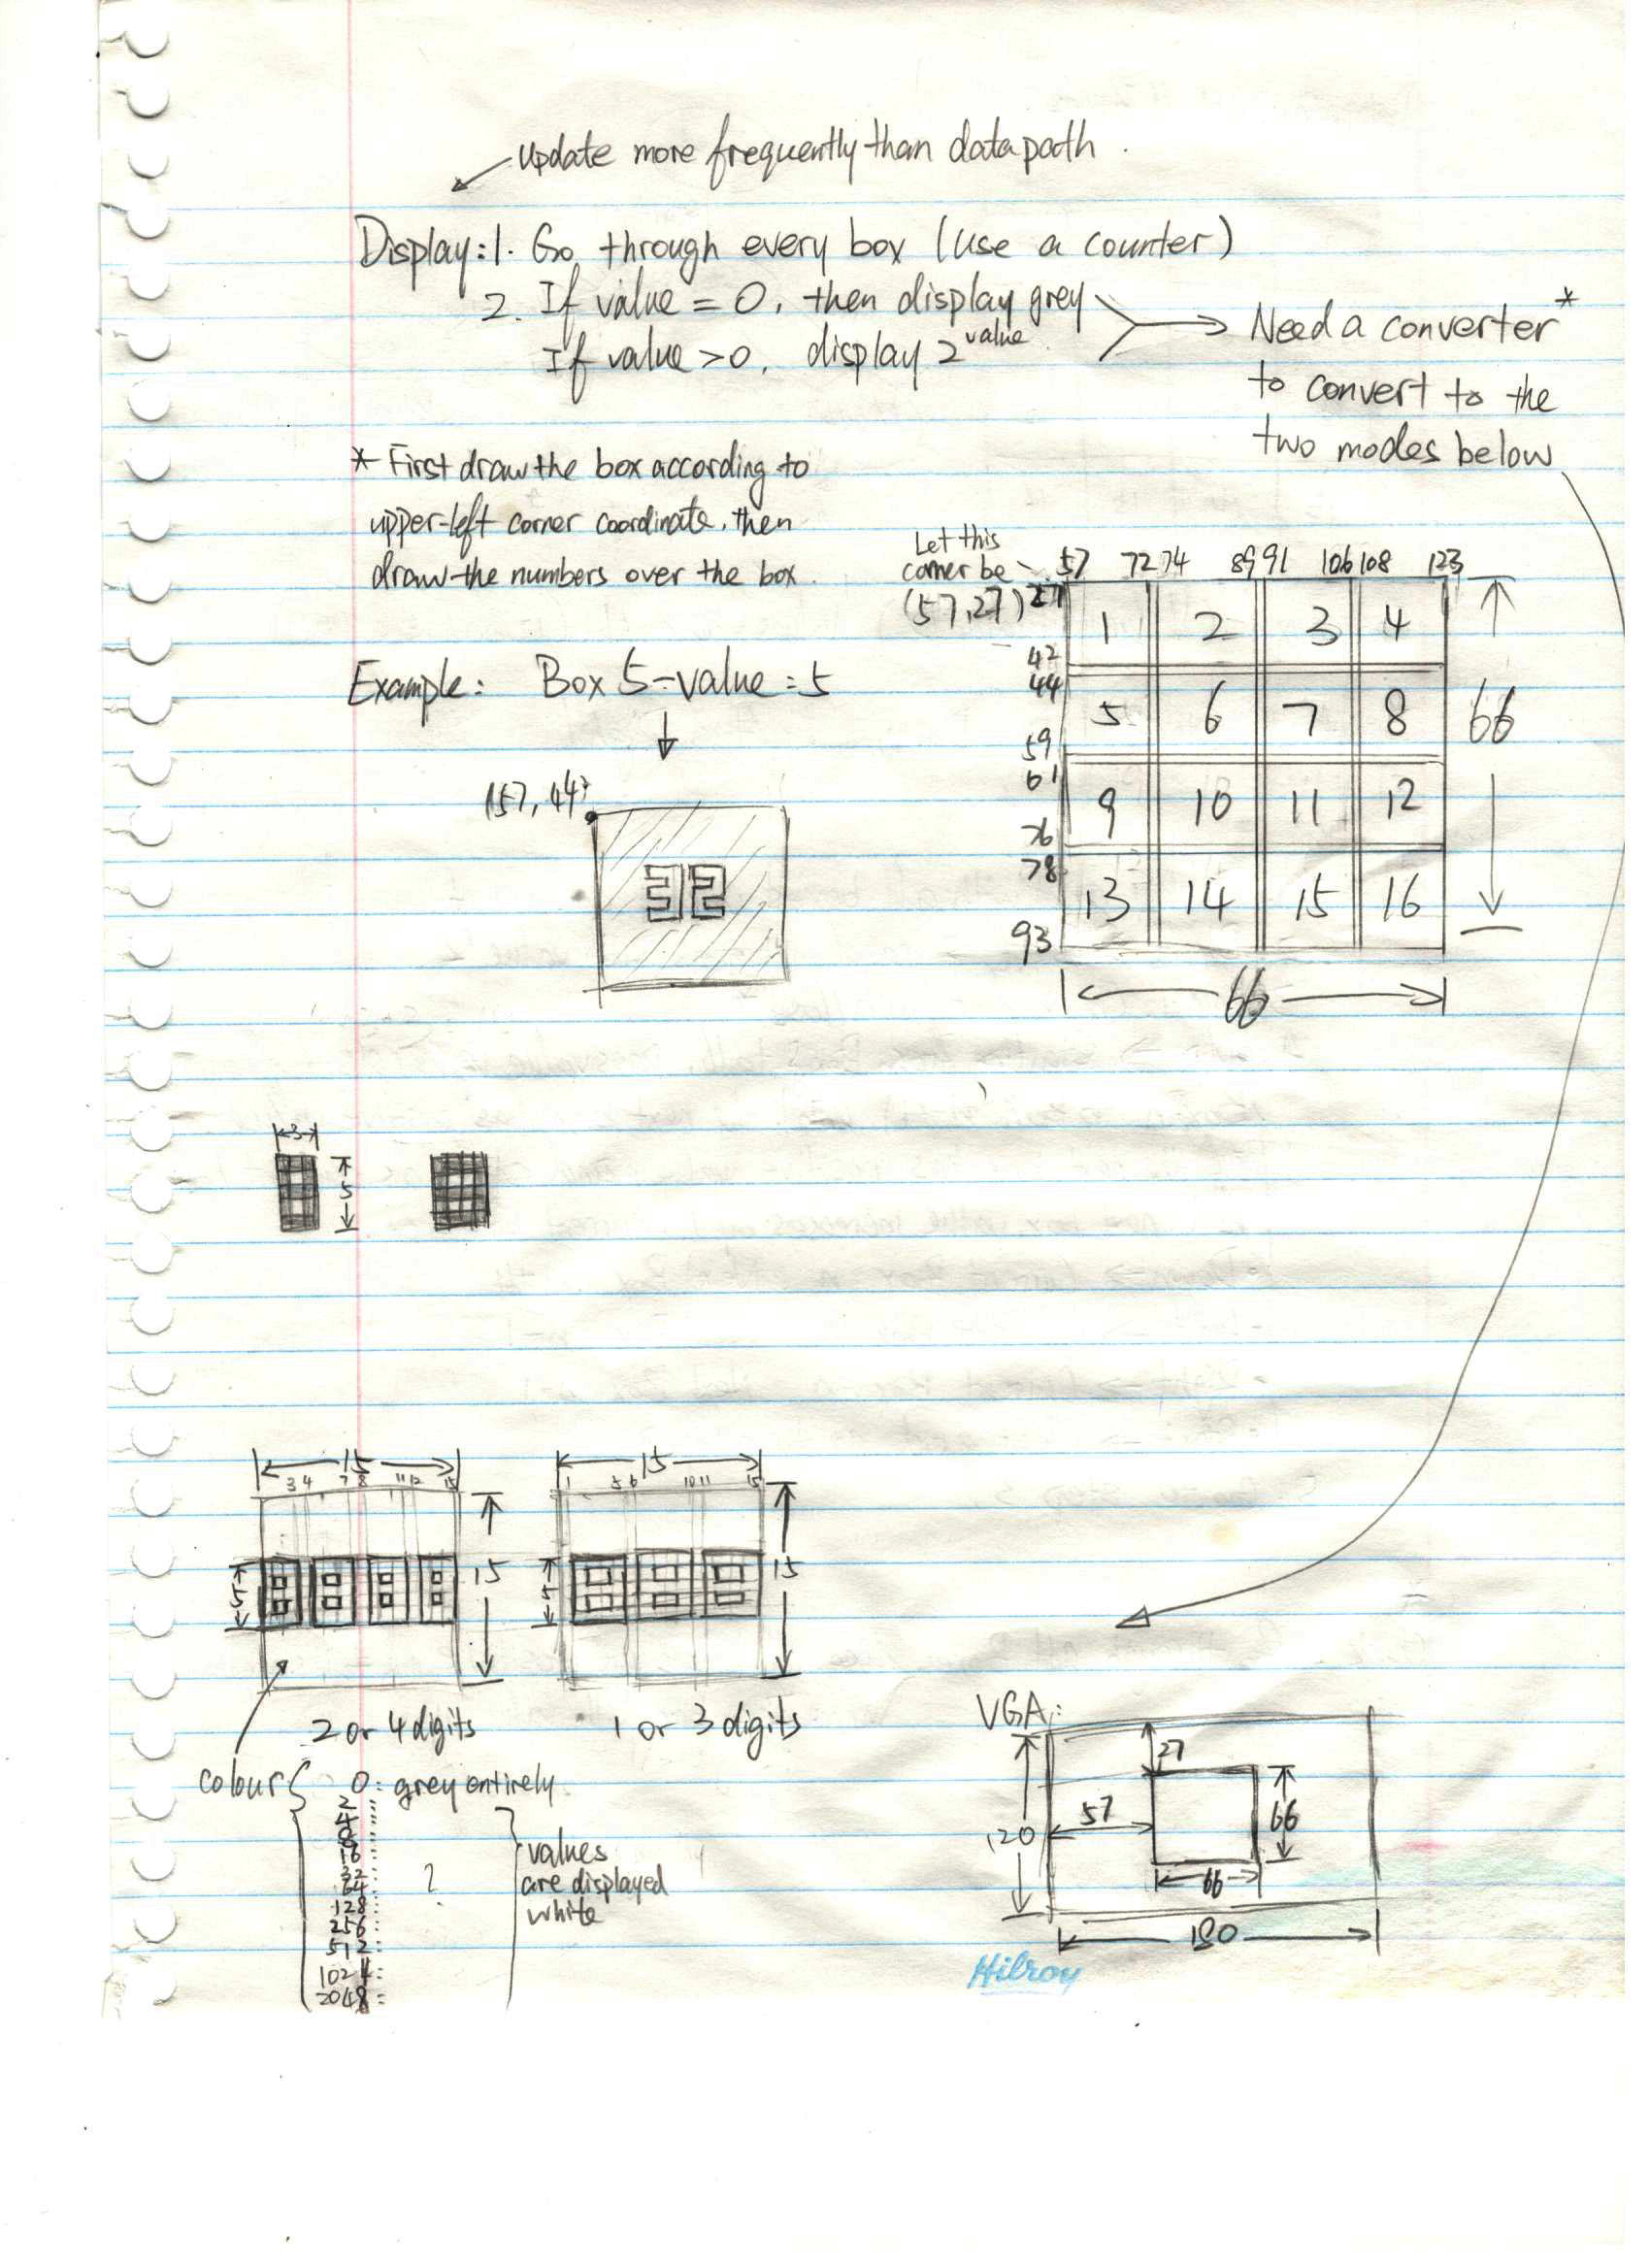 Update more frequently than datapath.
Display: 1. Go through every box (use a counter)
2. If value = 0, then display grey
If value > 0, display 2^value.
Need a converter*
to convert to the
two modes below
* First draw the box according to
upper-left corner coordinate, then
draw the numbers over the box.
Let this
corner be
(57,27)
57 72 74 89 91 106 108 123
27
42
44
59
61
76
78
93
1 2 3 4
5 6 7 8
9 10 11 12
13 14 15 16
66
66
Example: Box 5-value=5
(57,44)
32
3
5
15
3 4 7 8 11 12 15
5
15
2 or 4 digits
15
1 5 6 10 11 15
5
15
1 or 3 digits
colour
0: grey entirely
2:
4:
8:
16:
32:
64:
128:
256:
512:
1024:
2048:
?
values
are displayed
white
VGA:
27
57
66
120
66
Hilroy